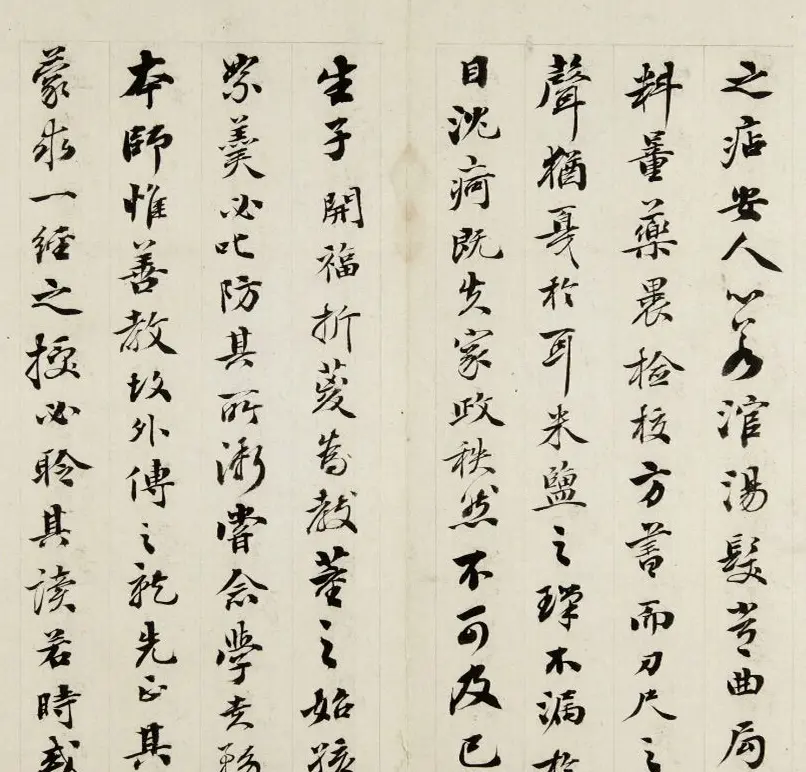 之痁安人心若涫湯髮曲局
料量藥裹檢校方書而刀尺之
聲猶戛於耳米鹽之璅不漏於
目沈疴既失家政秩然不可及已
生子開福折葼教董之始孩
絮羹必叱防其所漸嘗念學貴務
本師惟善教故外傅之就先正其
蒙求一經之授必聆其讀若時或